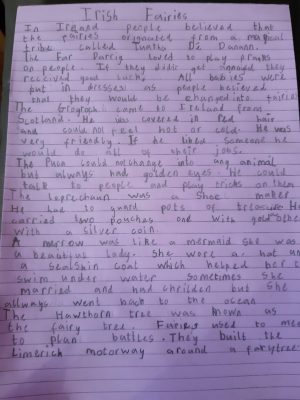 Irish Fairies
In Ireland people believed that
the fairies originated from a magical
tribe called Tuatha Dé Danann.
The Far Darrig loved to play pranks
on people. If they didt get annoyed they
received good luck. All babies were
put in dresses as people believed
that they would be changed into fairies
The Grogoch came to Ireland from
Scotland. He was covered in red hair
and could not feel hot or cold. He was
very friendly. If he liked someone he
would do all of their jobs.
The Puca could change into any animal
but always had golden eyes. He could
talk to people and play tricks on them
The leprechaun was a shoe maker
He had to guard pots of treasure. He
carried two pouches one with gold other
with a silver coin.
A merrow was like a mermaid she was
a beautiful lady. She wore a hat and
a sealskin coat which helped her to
swim under water sometimes she
married and had chrilden but she
allways went back to the ocean
The Hawthorn tree was known as
the fairy tree. Fairies used to meet
to plan battles. They built the
Limerick motorway around a fairytree